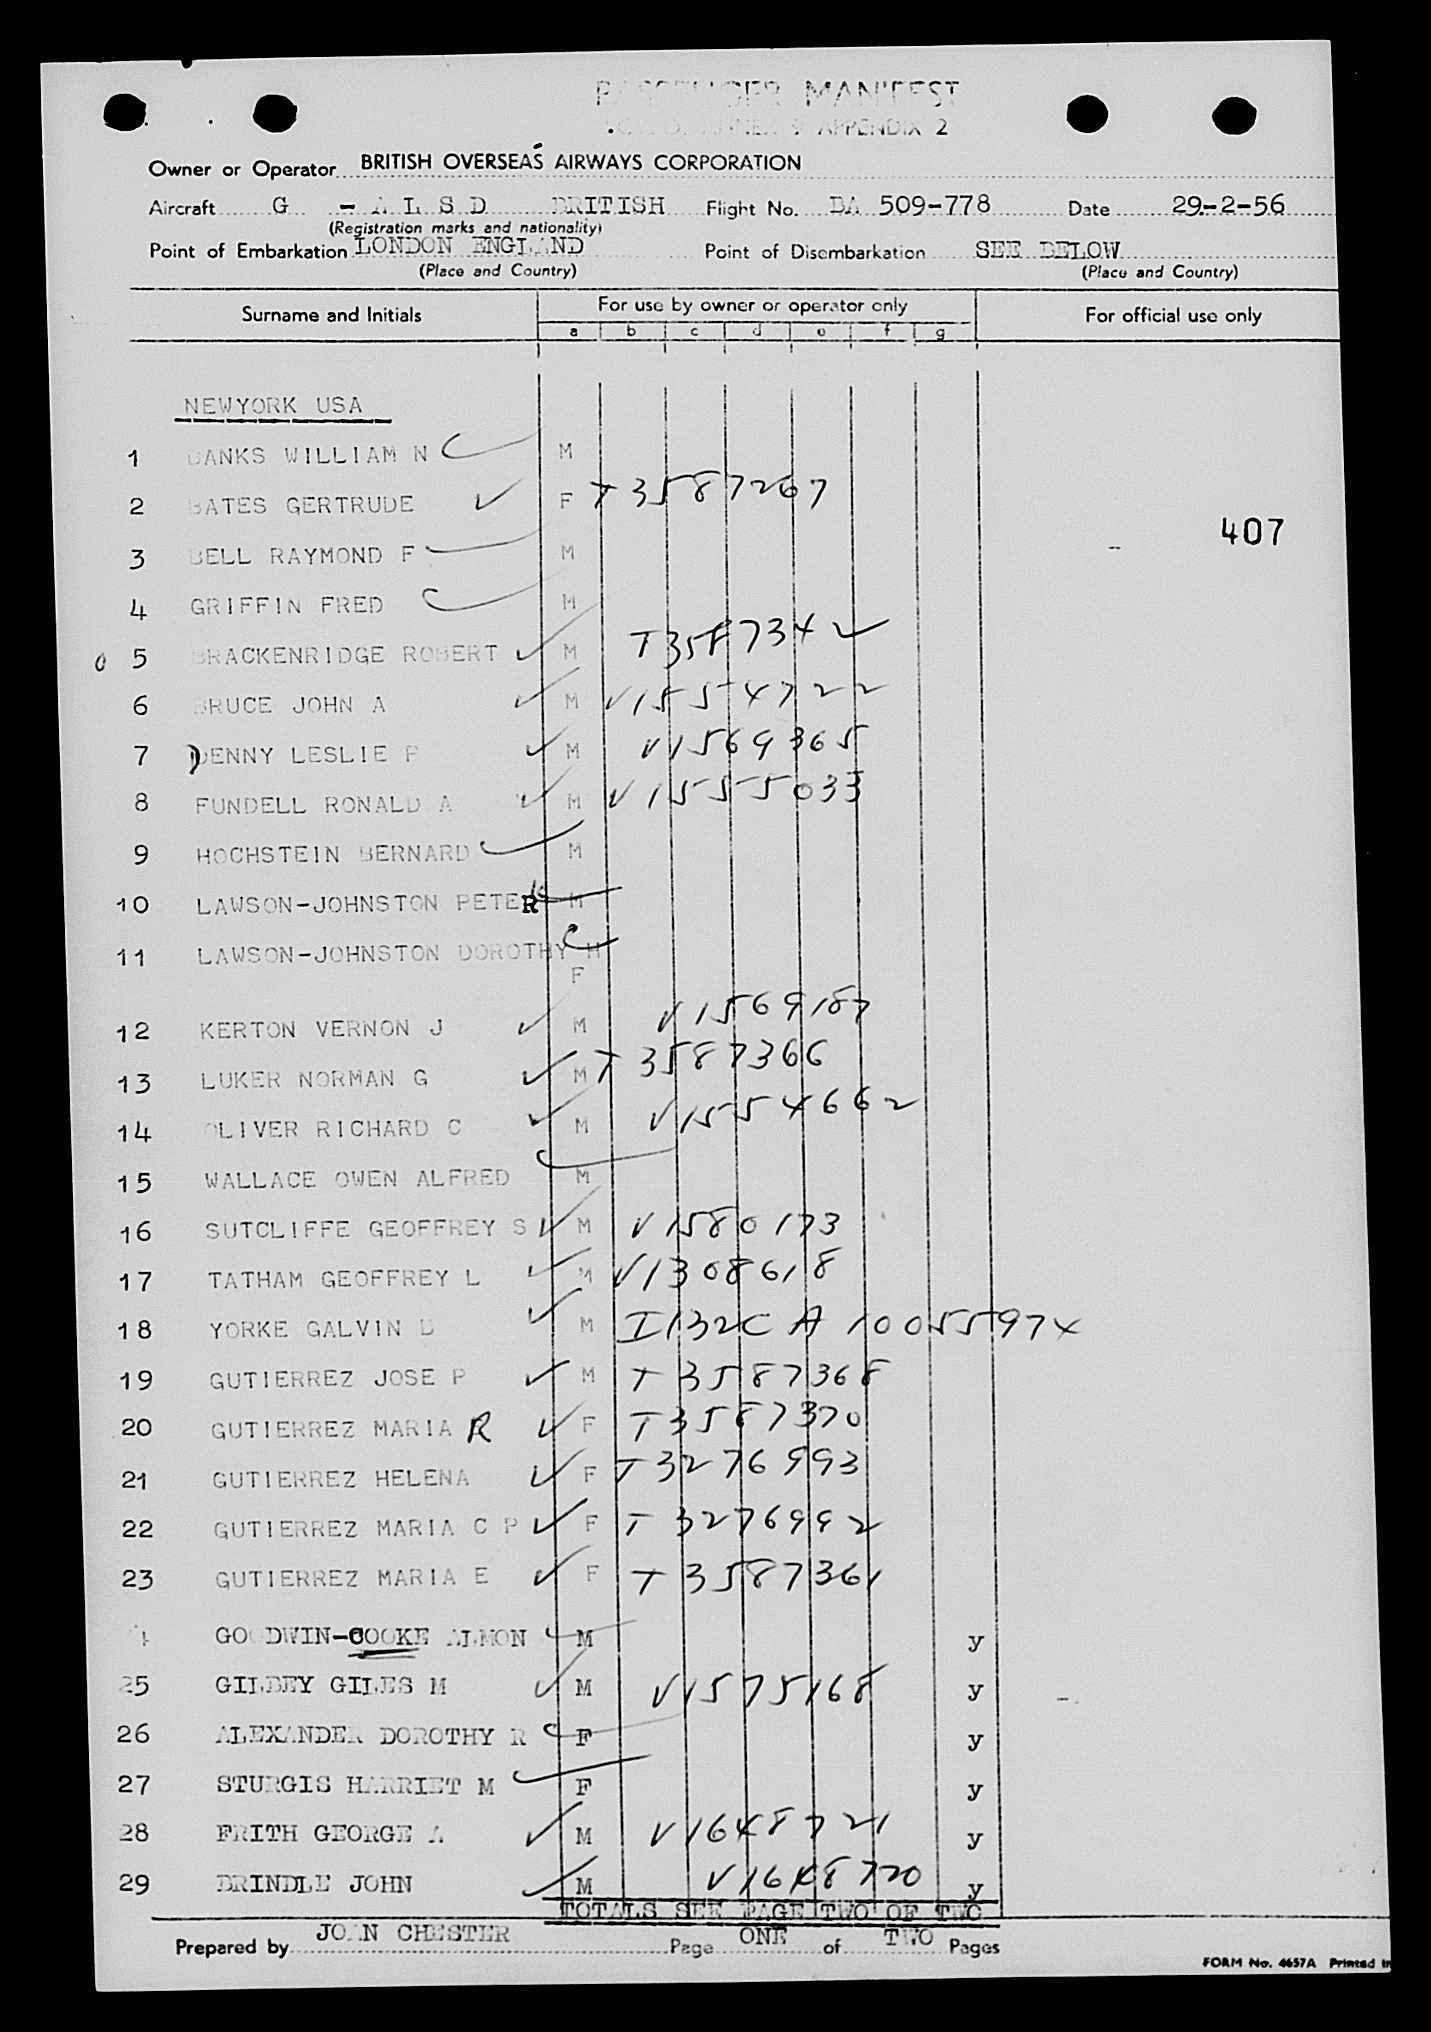 PASSENGER MANIFEST
APPENDIX 2
Owner or Operator BRITISH OVERSEAS AIRWAYS CORPORATION
Aircraft G - A L S D BRITISH Flight No. BA 509-778 Date 29-2-56
(Registration marks and nationality)
Point of Embarkation LONDON ENGLAND Point of Disembarkation SEE BELOW
(Place and Country) (Place and Country)
Surname and Initials For use by owner or operator only For official use only
a b c d e f g
NEWYORK USA
1 BANKS WILLIAM N M
2 BATES GERTRUDE F T3587267
407
3 BELL RAYMOND F M
4 GRIFFIN FRED M
0 5 BRACKENRIDGE ROBERT M T3587342
6 BRUCE JOHN A M V1554722
7 DENNY LESLIE P M V1569365
8 FUNDELL RONALD A M V1555033
9 HOCHSTEIN BERNARD M
10 LAWSON-JOHNSTON PETER M
11 LAWSON-JOHNSTON DOROTHY H
F
12 KERTON VERNON J M V1569187
13 LUKER NORMAN G M T3587366
14 OLIVER RICHARD C M V1554662
15 WALLACE OWEN ALFRED M
16 SUTCLIFFE GEOFFREY S M V1580173
17 TATHAM GEOFFREY L M V1308618
18 YORKE GALVIN D M I132C A 10055974
19 GUTIERREZ JOSE P M T3587368
20 GUTIERREZ MARIA R F T3587370
21 GUTIERREZ HELENA F T3276993
22 GUTIERREZ MARIA C P F T3276992
23 GUTIERREZ MARIA E F T3587361
GOODWIN-COOKE ALMON M y
25 GILBEY GILES M M V1575168 y
26 ALEXANDER DOROTHY R F y
27 STURGIS HARRIET M F y
28 FRITH GEORGE A M V1648721 y
29 BRINDLE JOHN M V1648720 y
TOTALS SEE PAGE TWO OF TWO
Prepared by JOAN CHESTER Page ONE of TWO Pages
FORM No. 4657A Printed in